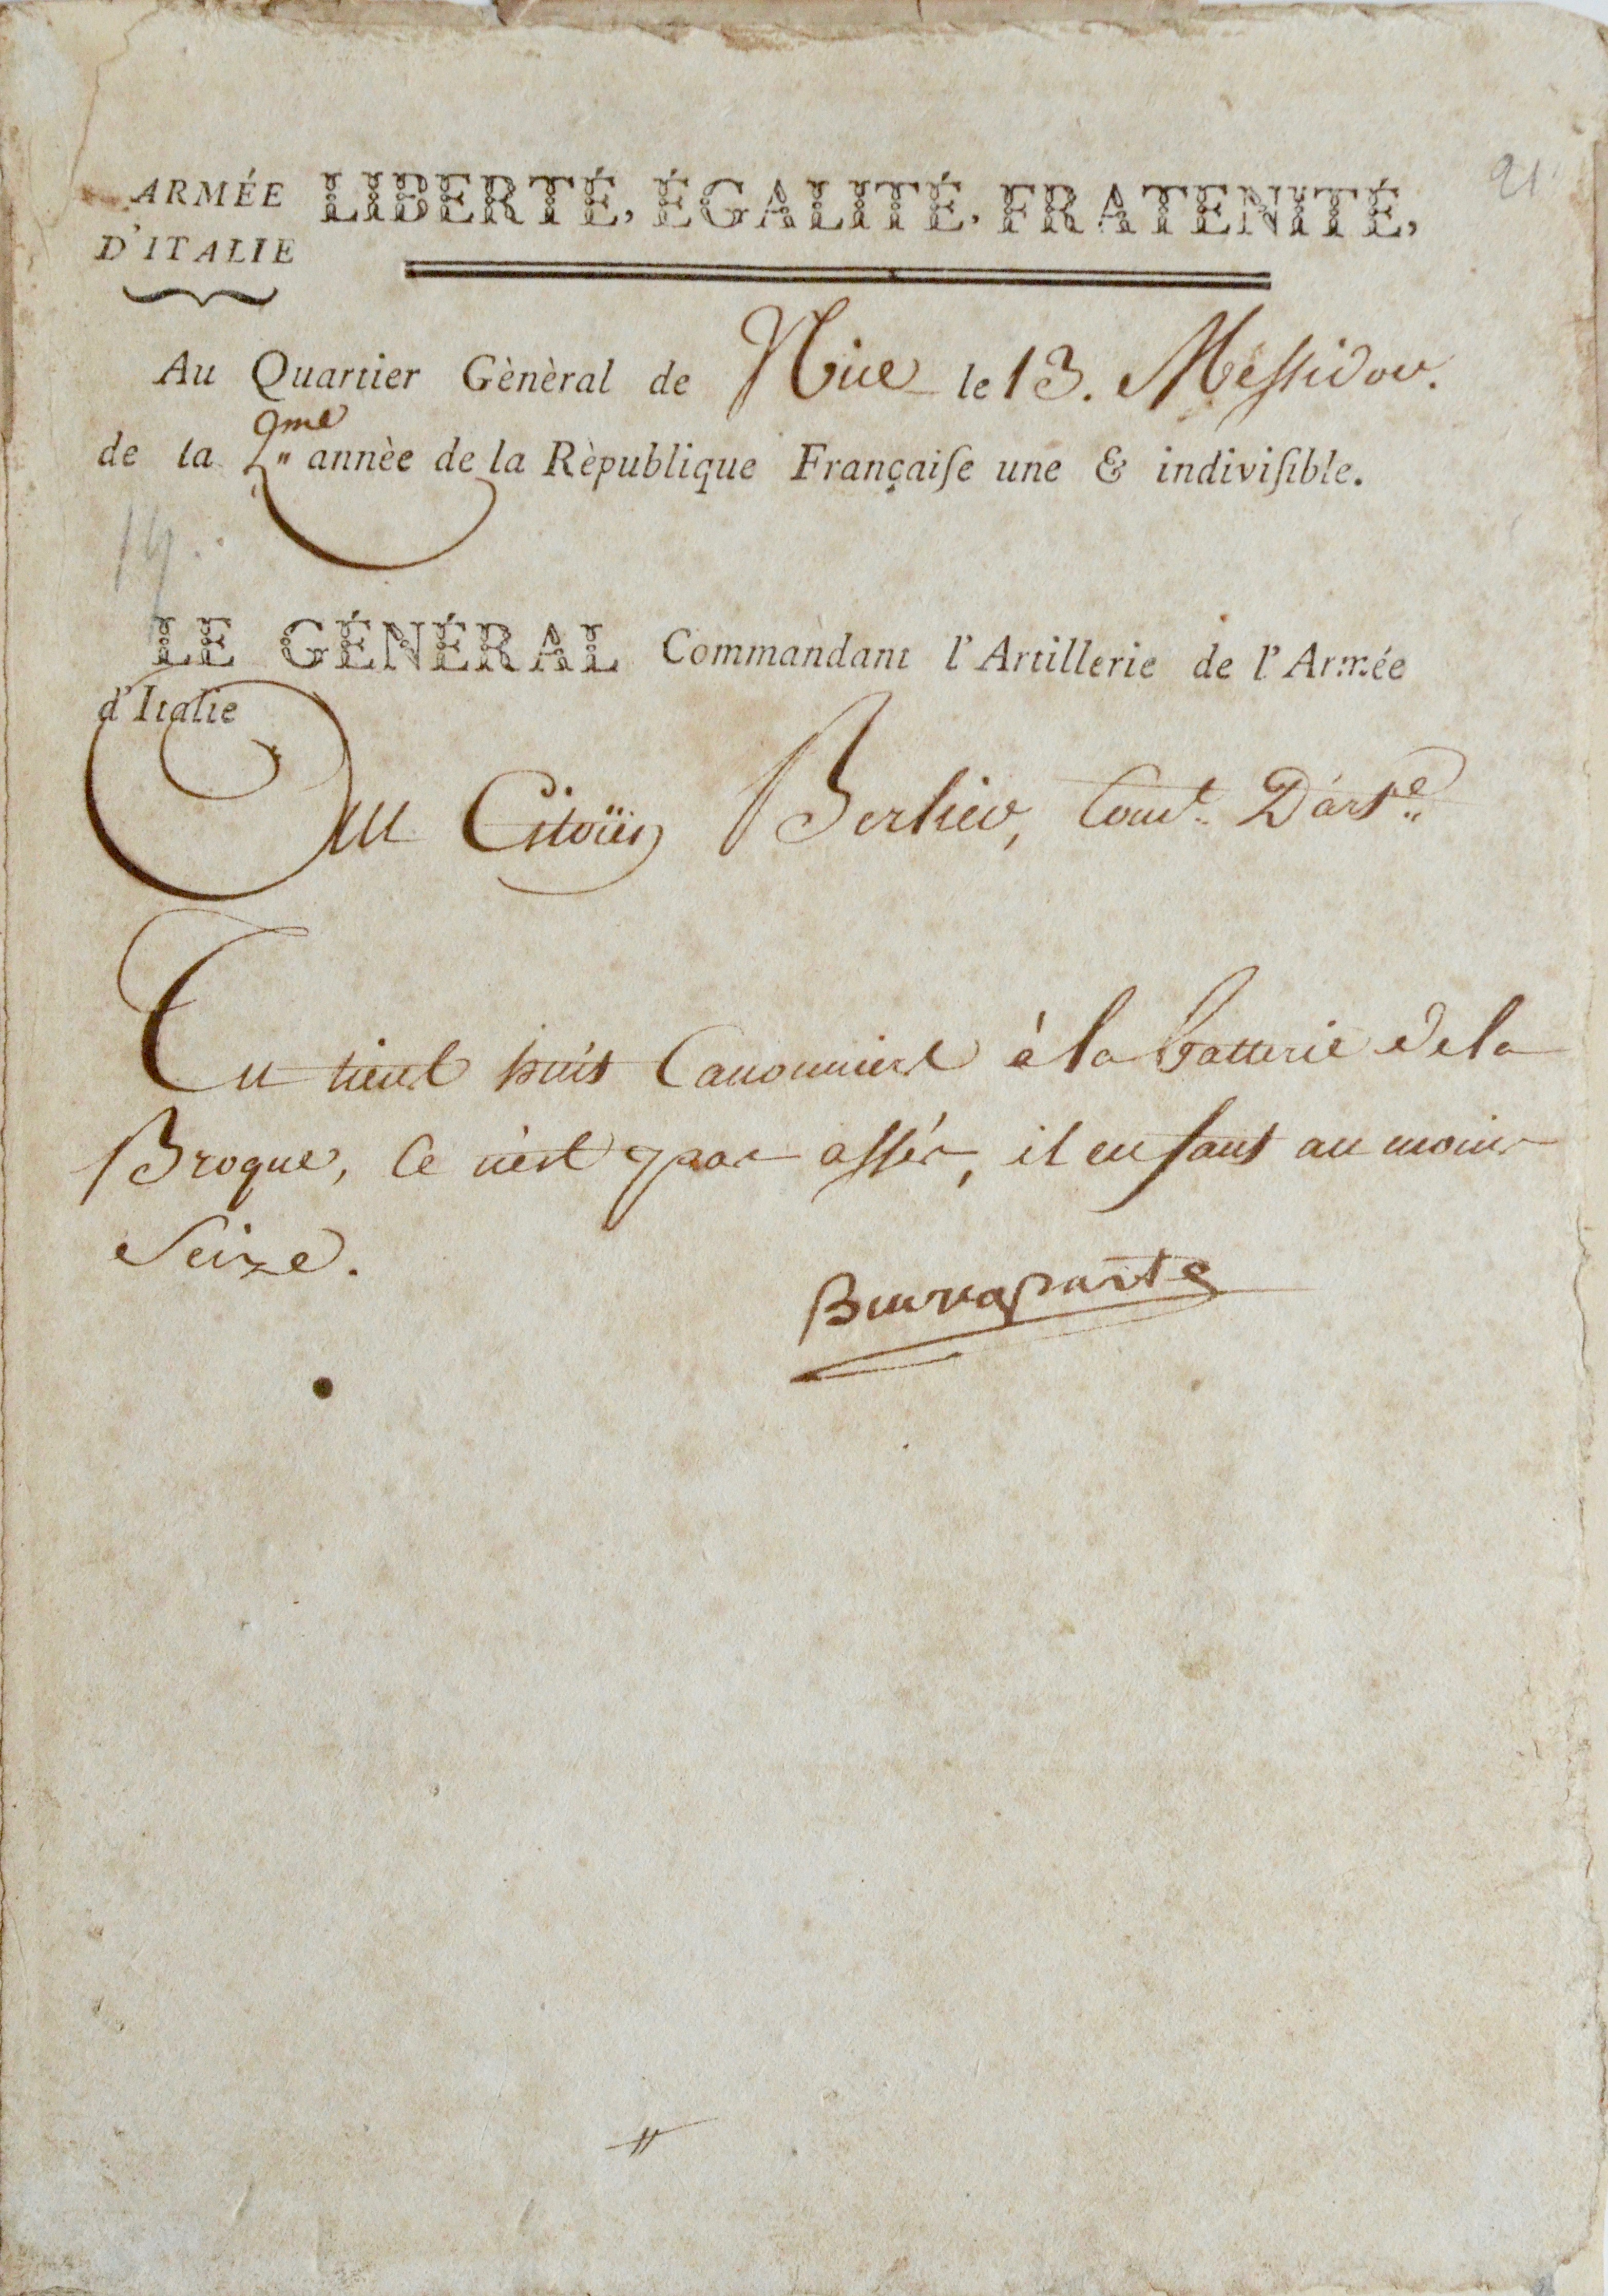 21
ARMÉE LIBERTÉ, ÉGALITÉ, FRATENITÉ,
D'ITALIE
Au Quartier Gènèral de Nice le 13. Messidor.
de la 2me annèe de la Rèpublique Françaiſe une & indiviſible.
LE GÉNÉRAL Commandant l'Artillerie de l'Armée
d'Italie
Au Citoÿen Berlier, Comt. D'arte.
Tu tient huit Canonniers à la batterie de la
Broque, Ce n'est pas assés, il en faut au moins
Seize.
Buonaparte